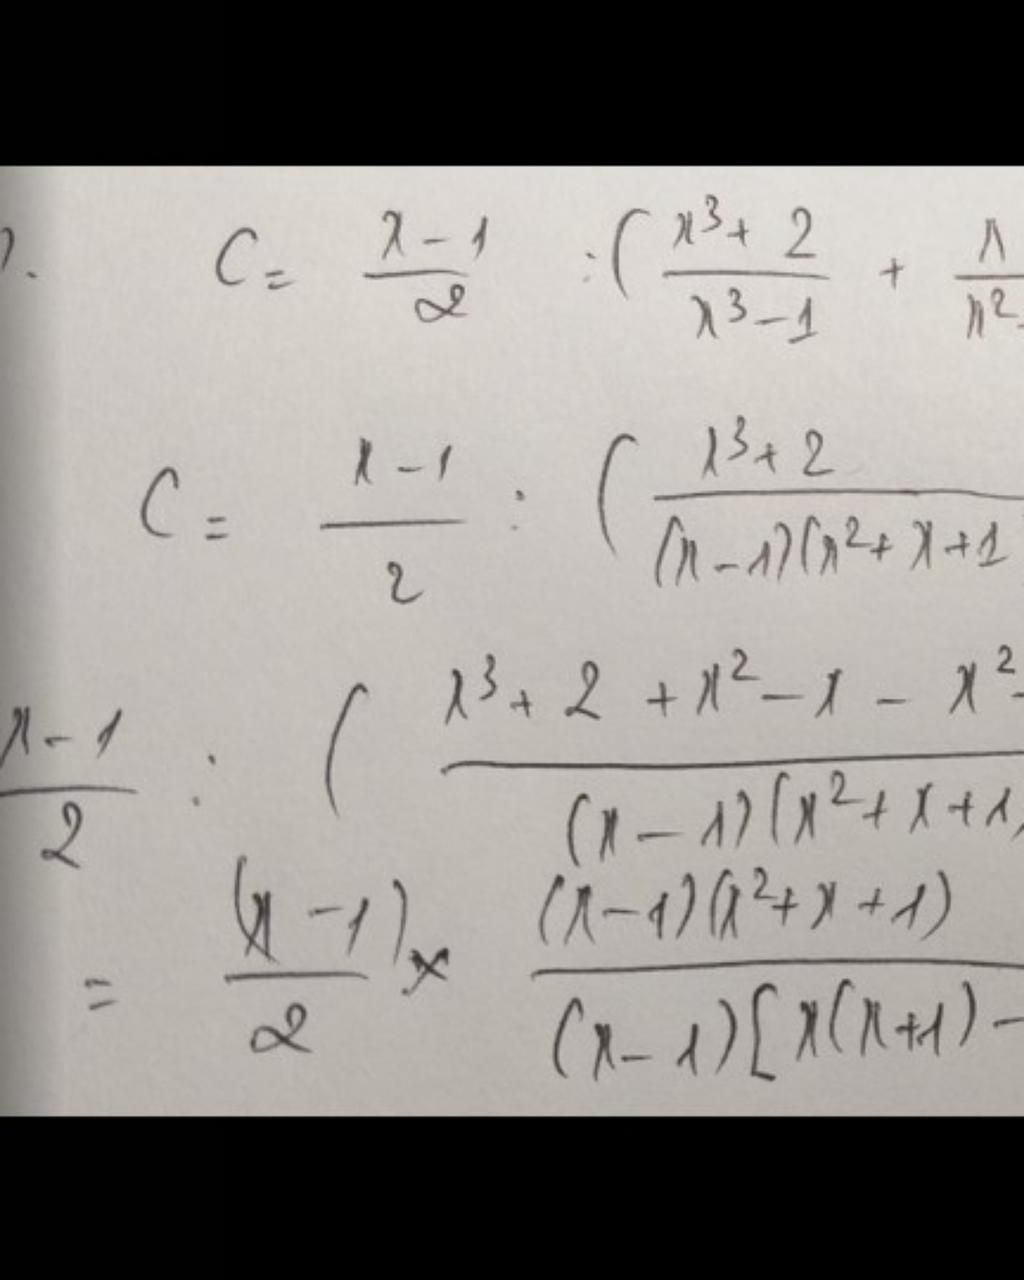 C = \frac{x-1}{2} : ( \frac{x^3+2}{x^3-1} + \frac{x}{x^2-
C = \frac{x-1}{2} : ( \frac{x^3+2}{(x-1)(x^2+x+1)
\frac{x-1}{2} : ( \frac{x^3+2+x^2-x-x^2-}{(x-1)(x^2+x+1)
= \frac{(x-1)}{2} × \frac{(x-1)(x^2+x+1)}{(x-1)[x(x+1)-